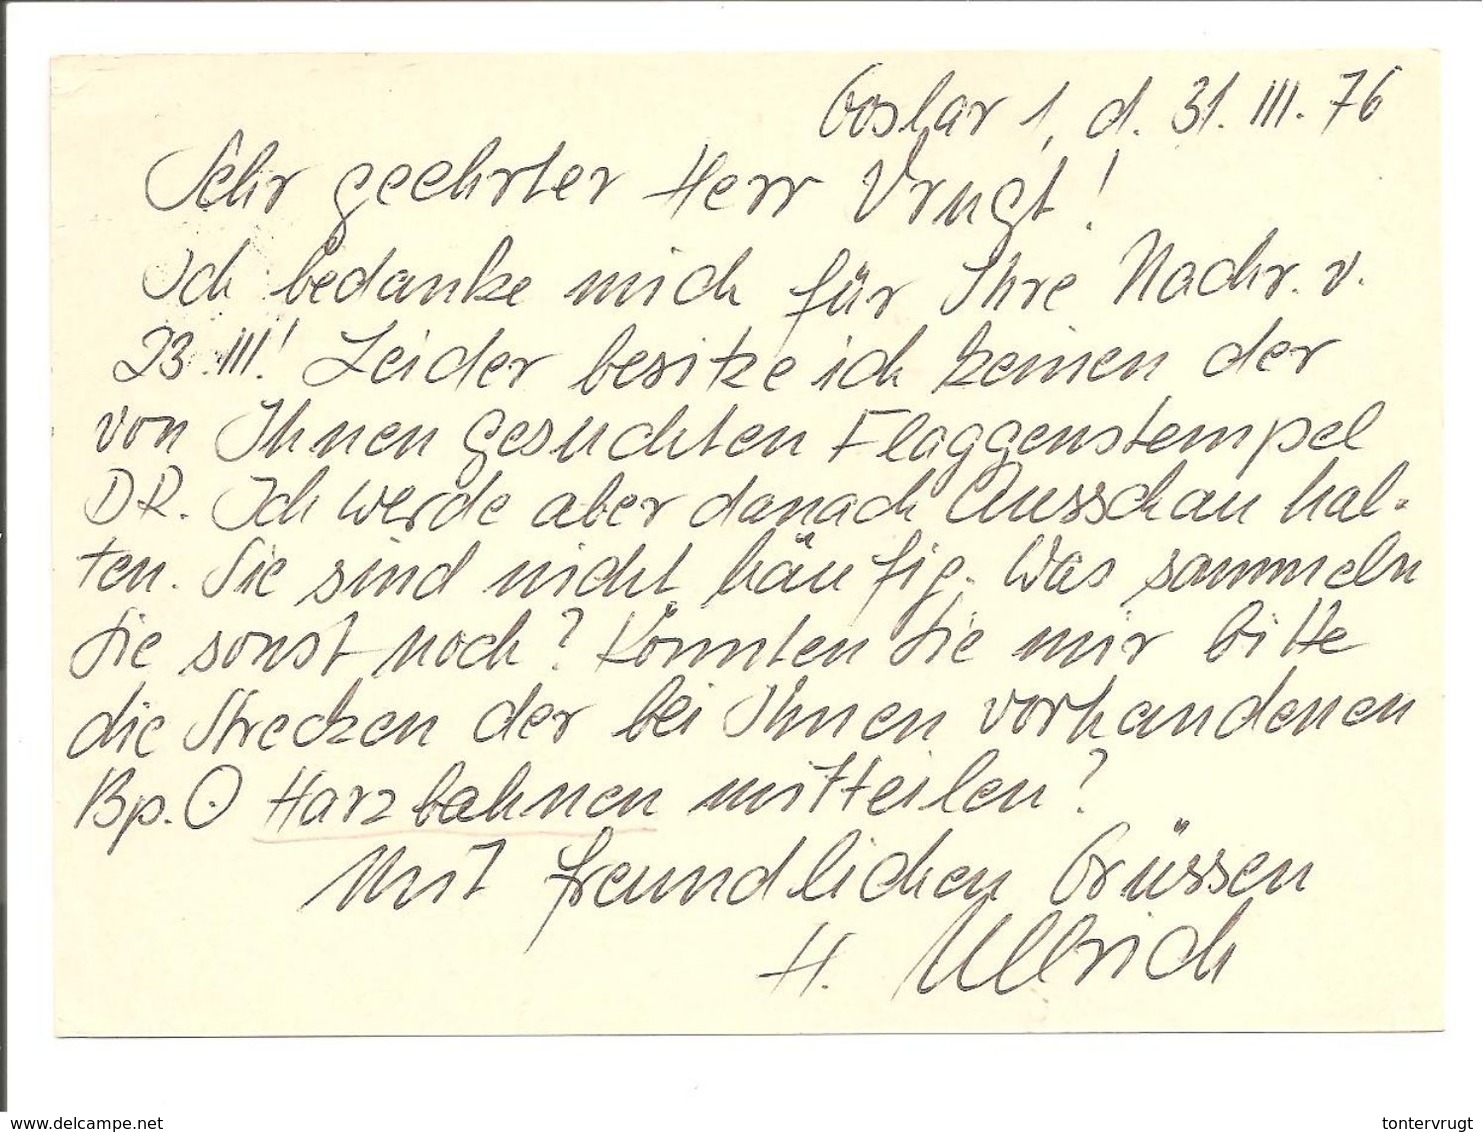 Goslar 1, d. 31. III. 76
Sehr geehrter Herr Vrugt!
Ich bedanke mich für Ihre Nachr. v.
23. III.! Leider besitze ich keinen der
von Ihnen gesuchten Flaggenstempel
DR. Ich werde aber danach Ausschau hal-
ten. Sie sind nicht häufig. Was sammeln
Sie sonst noch? Könnten Sie mir bitte
die Strecken der bei Ihnen vorhandenen
Bp. ʘ Harzbahnen mitteilen?
Mit freundlichen Grüssen
H. Ullrich
www.delcampe.net
tontervrugt